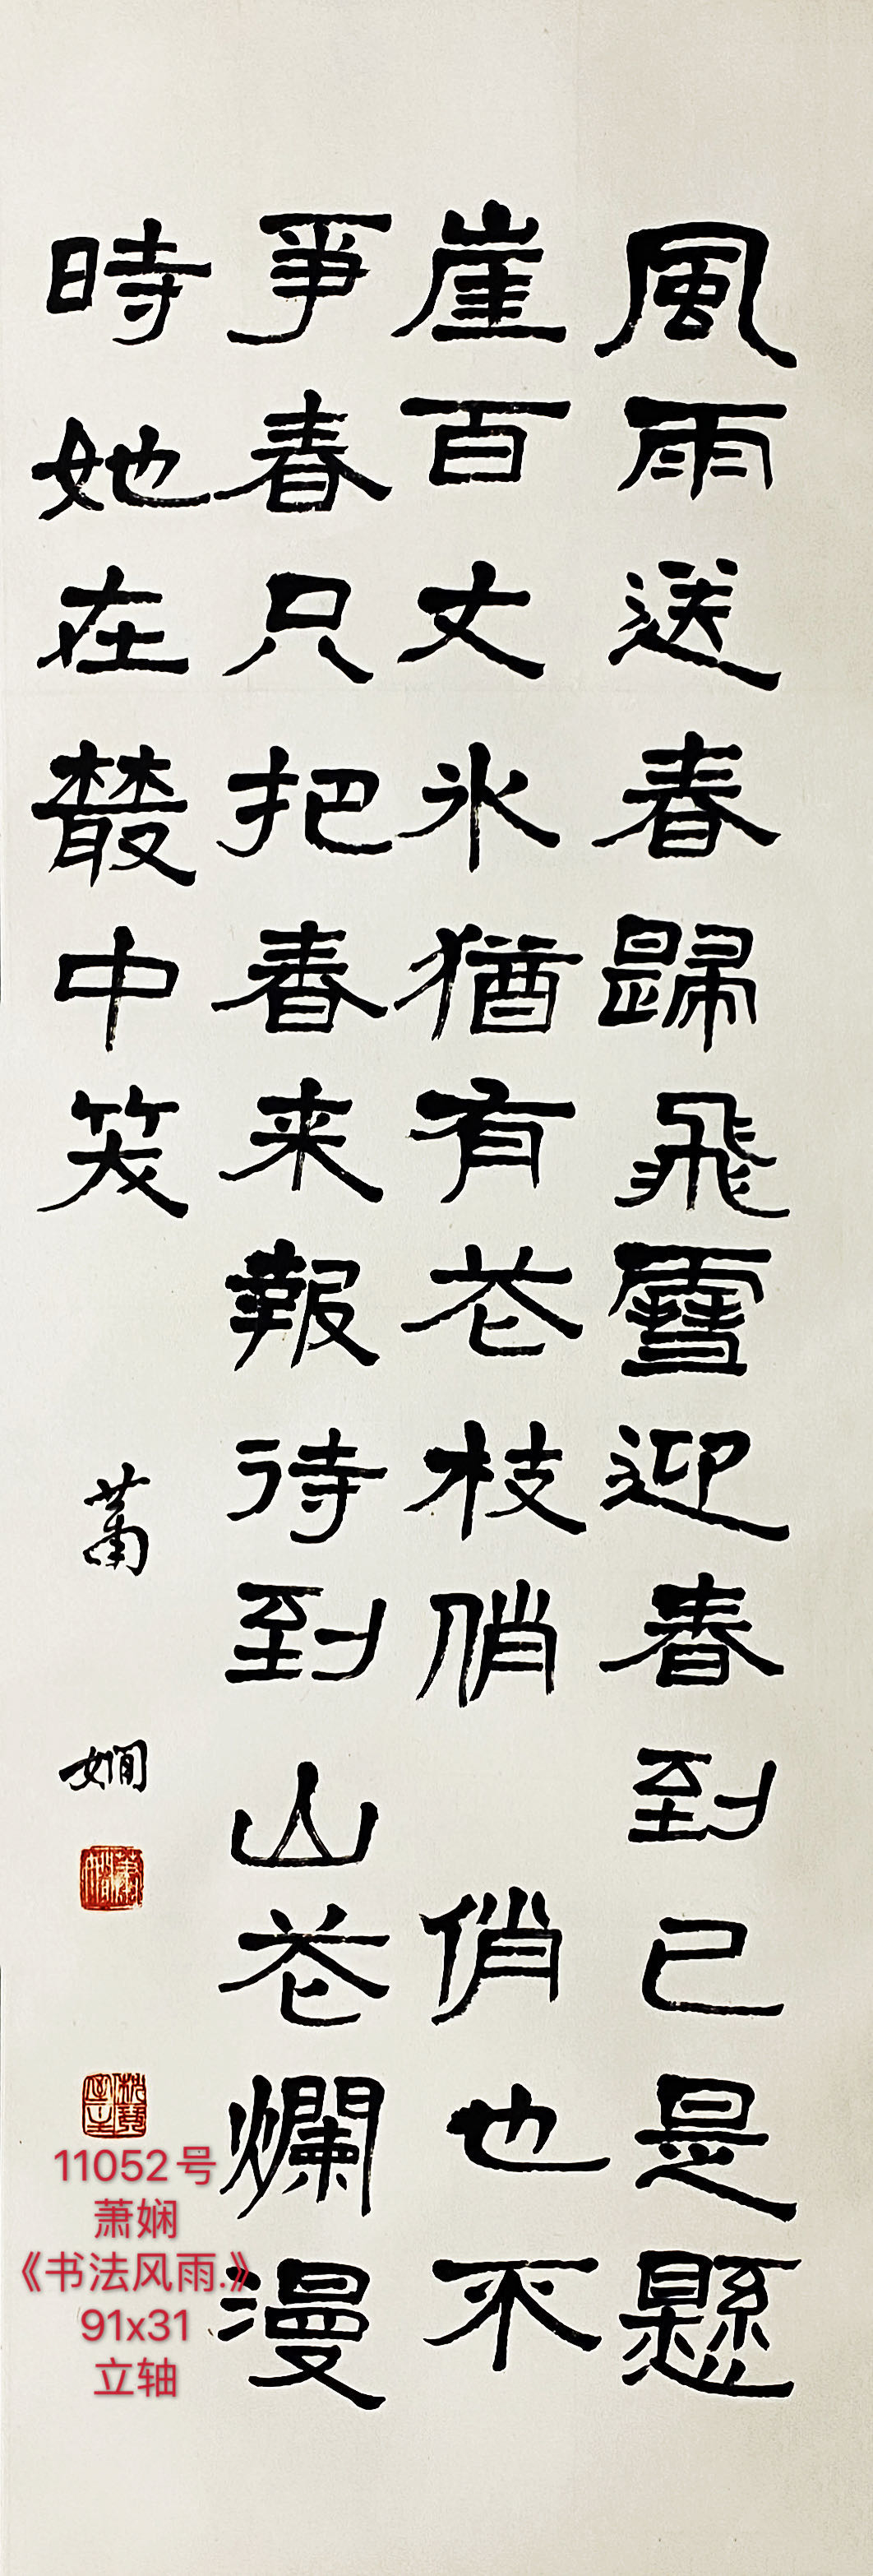 風雨送春歸飛雪迎春到已是懸
崖百丈冰猶有花枝俏俏也不
爭春只把春来報待到山花爛漫
時她在叢中笑
蕭嫻
蕭嫻
枕琴室主
11052号
萧娴
《书法风雨.》
91x31
立轴